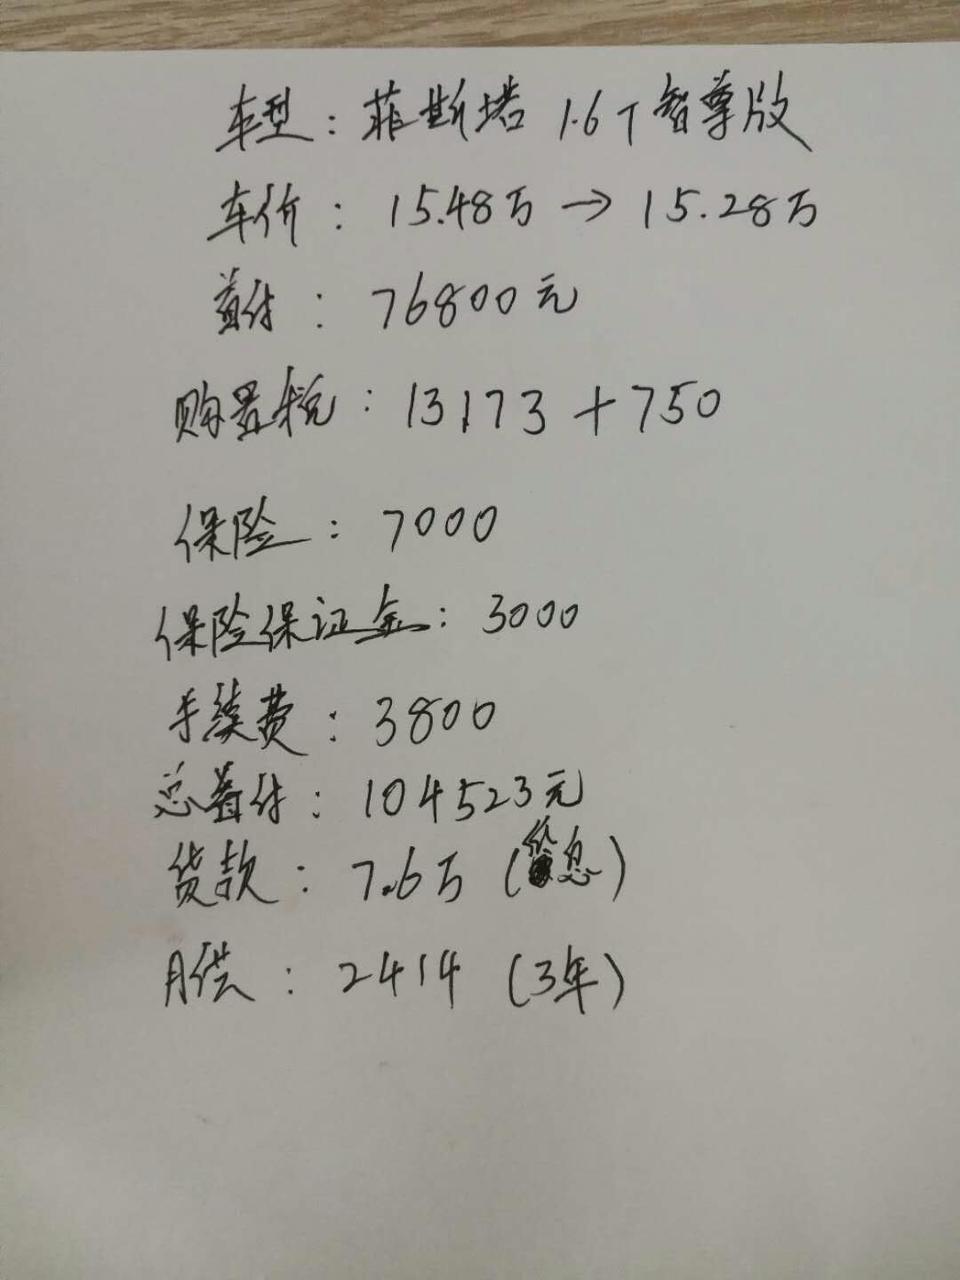 车型：菲斯塔 1.6T智尊版
车价：15.48万→15.28万
首付：76800元
购置税：13173+750
保险：7000
保险保证金：3000
手续费：3800
总首付：104523元
贷款：7.6万（低息）
月供：2414（3年）